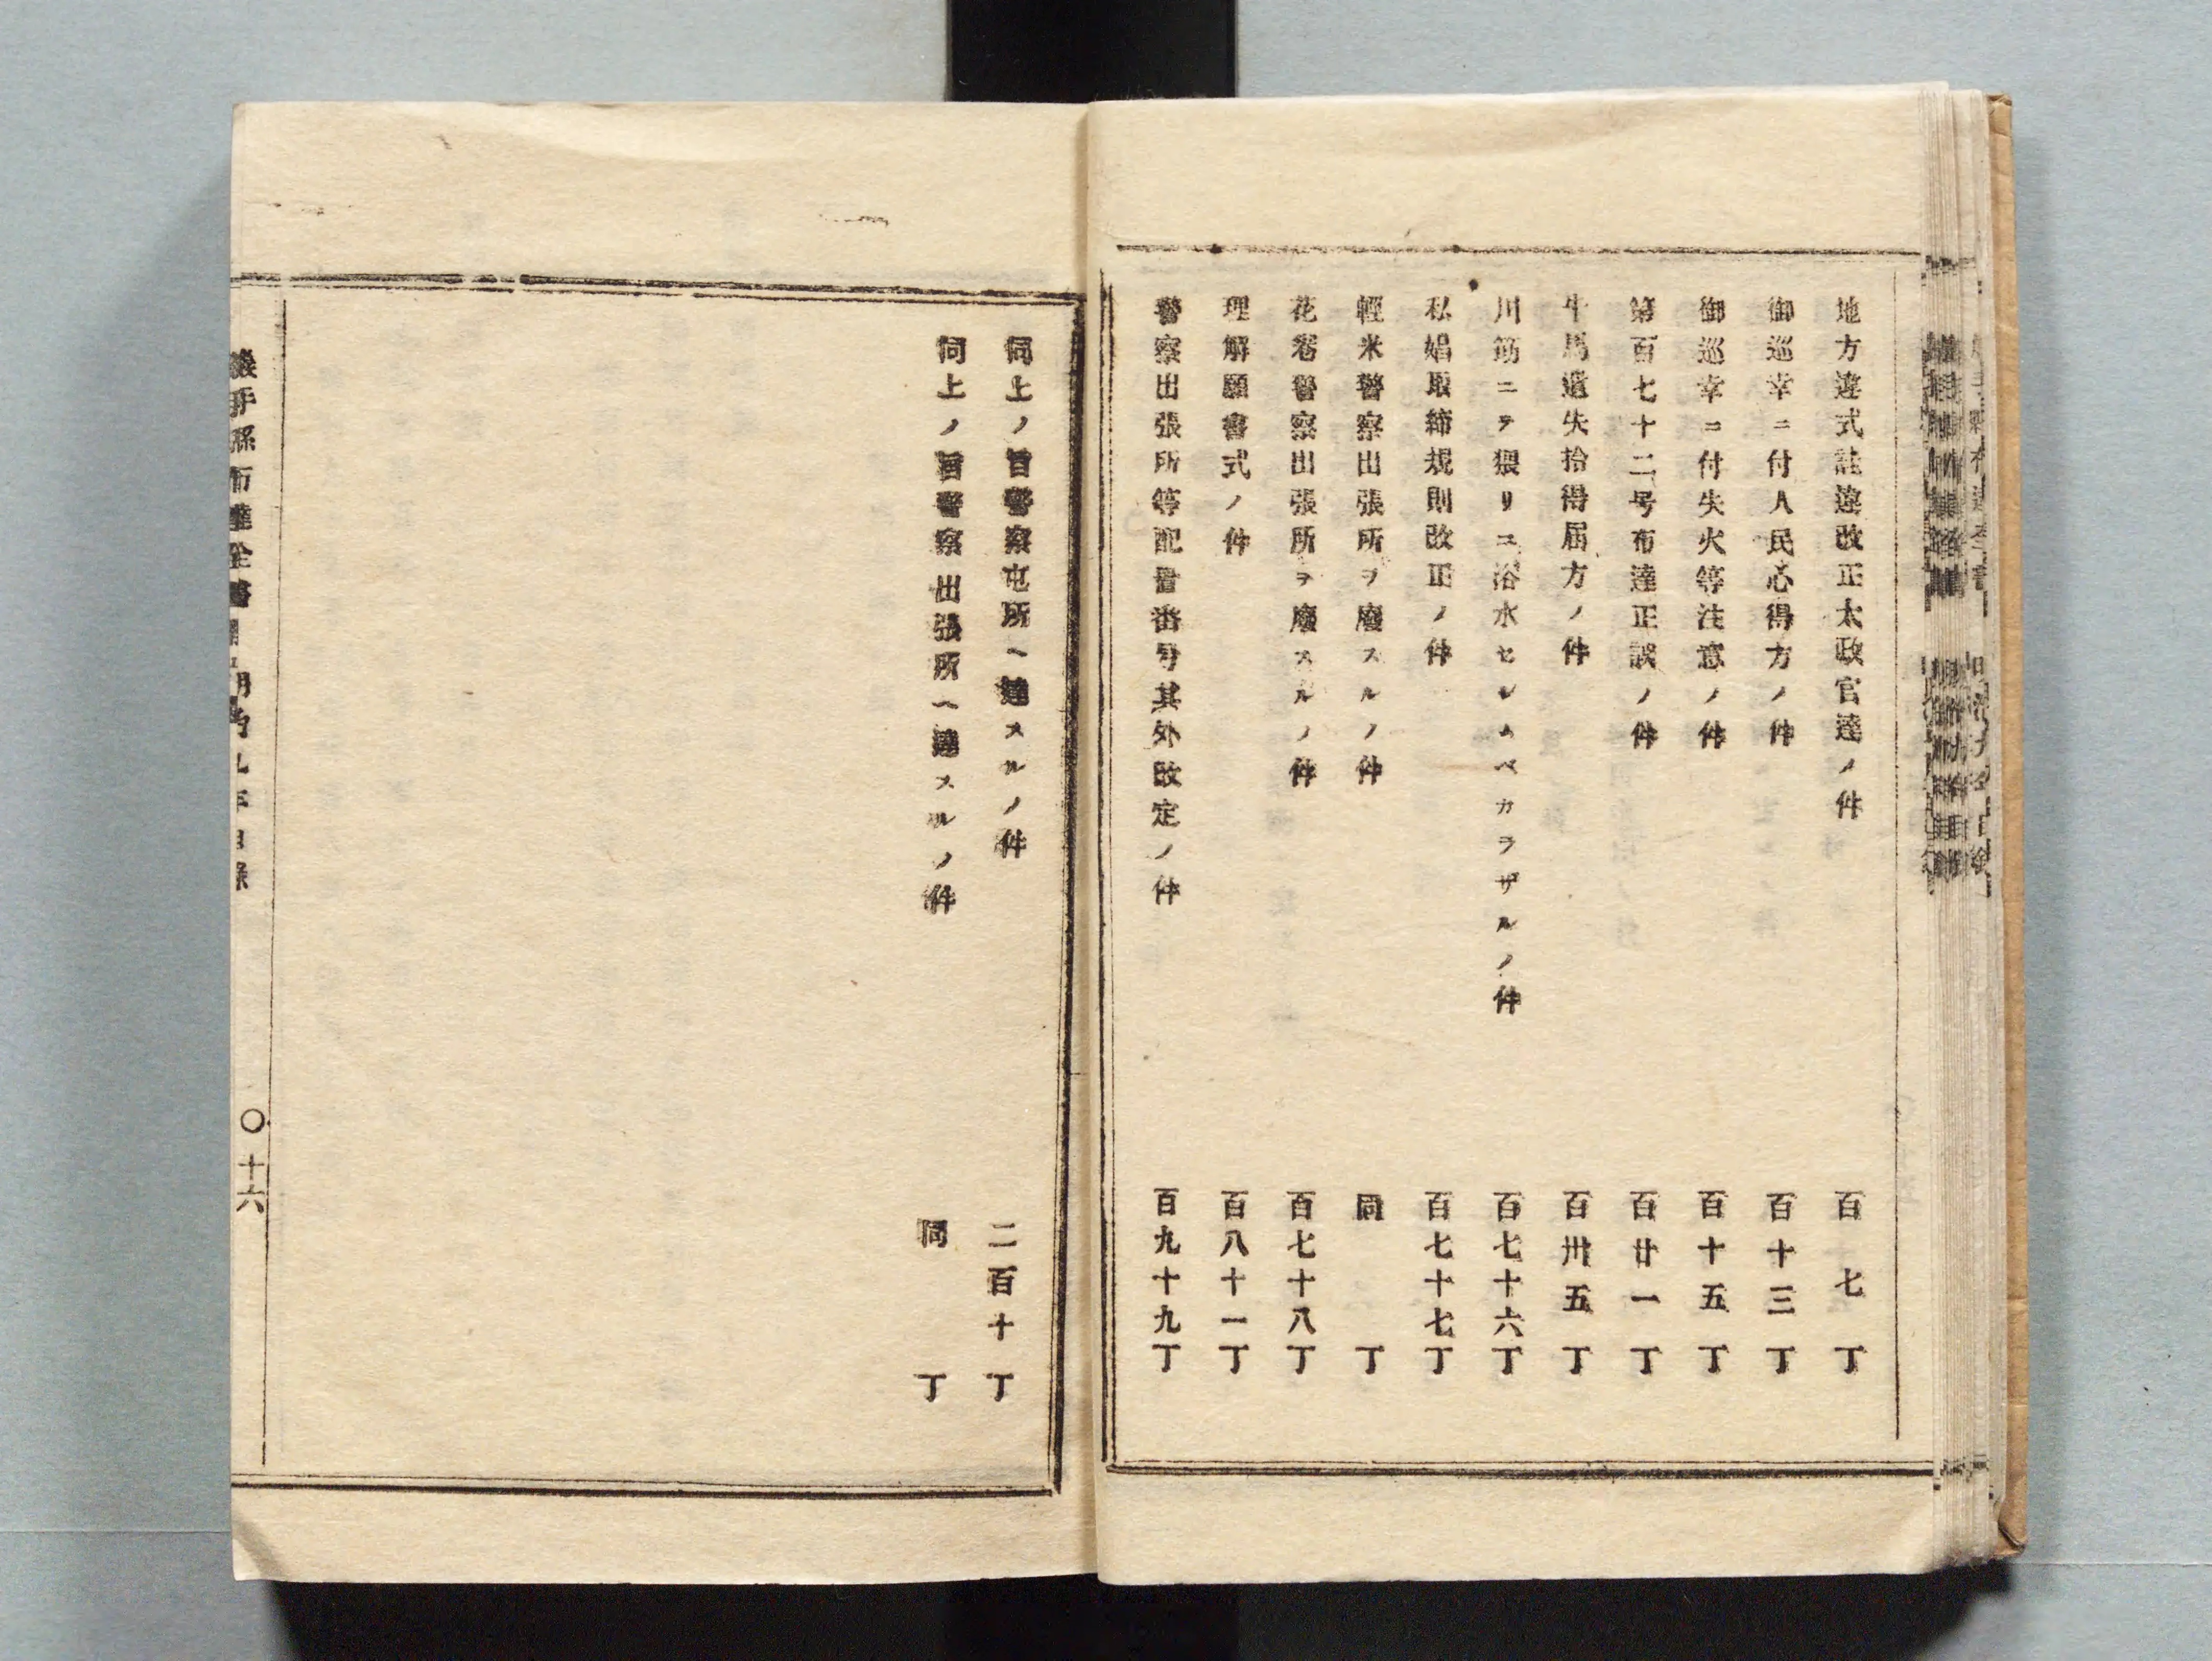 地方違式詿違改正太政官達ノ件 百七丁
御巡幸ニ付人民心得方ノ件 百十三丁
御巡幸ニ付失火等注意ノ件 百十五丁
第百七十二号布達正誤ノ件 百廿一丁
牛馬遺失拾得届方ノ件 百卅五丁
川筋ニテ猥リニ浴水セシムベカラザルノ件 百七十六丁
私娼取締規則改正ノ件 百七十七丁
輕米警察出張所ヲ廢スルノ件 同丁
花卷警察出張所ヲ廢スルノ件 百七十八丁
理解願書式ノ件 百八十一丁
警察出張所等配置番号其外改定ノ件 百九十九丁
同上ノ旨警察屯所ヘ達スルノ件 二百十丁
同上ノ旨警察出張所ヘ達スルノ件 同丁
手縣布達全書 九年目録 〇十六